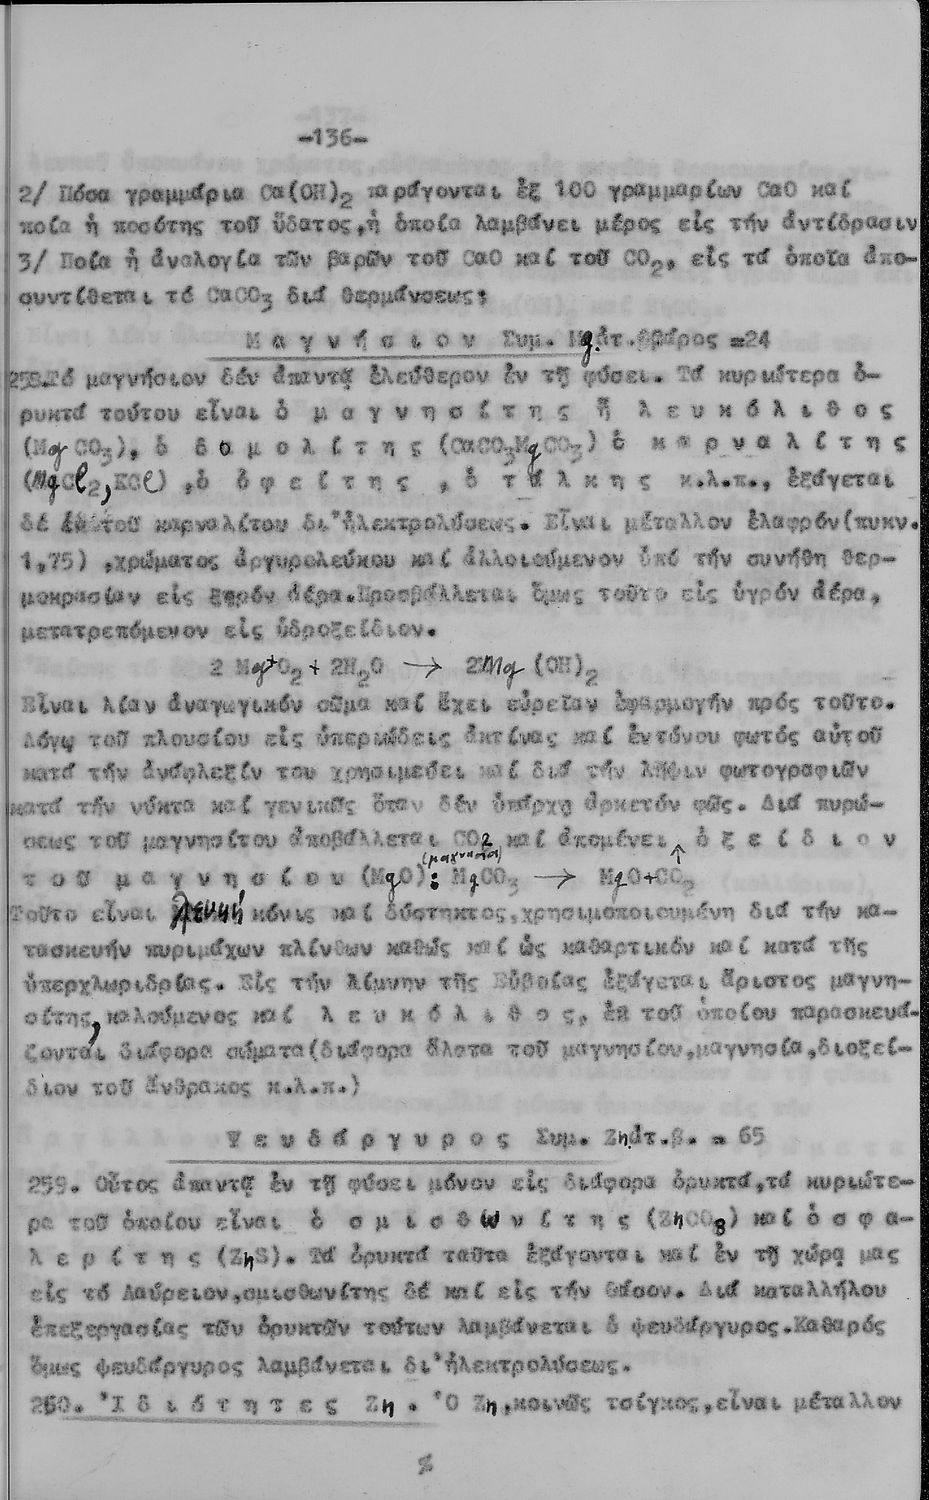 -136-
2/ Πόσα γραμμάρια Ca(OH)2 παράγονται ἐξ 100 γραμμαρίων CaO καί
ποία ἡ ποσότης τοῦ ὕδατος,ἡ ὁποία λαμβάνει μέρος εἰς τήν ἀντίδρασιν
3/ Ποία ἡ ἀναλογία τῶν βαρῶν τοῦ CaO καί τοῦ CO2, εἰς τά ὁποῖα ἀπο-
συντίθεται τό CaCO3 διά θερμάνσεως;
Μ α γ ν ή σ ι ο ν Συμ. Mg.ἀτ.ββάρος =24
258.Τό μαγνήσιον δέν ἀπαντᾷ ἐλεύθερον ἐν τῇ φύσει. Τά κυριώτερα ὀ-
ρυκτά τούτου εἶναι ὁ μ α γ ν η σ ί τ η ς ἤ λ ε υ κ ό λ ι θ ο ς
(MgCO3), ὁ δ ο μ ο λ ί τ η ς (CaCO3MgCO3) ὁ κ α ρ ν α λ ί τ η ς
(MgCl2,KCl) ,ὁ ὀ φ ε ί τ η ς , ὁ τ ά λ κ η ς κ.λ.π., ἐξάγεται
δέ ἐκ τοῦ καρναλίτου δι'ἠλεκτρολύσεως. Εἶναι μέταλλον ἐλαφρόν(πυκν.
1,75) ,χρώματος ἀργυρολεύκου καί ἀλλοιούμενον ὑπό τήν συνήθη θερ-
μοκρασίαν εἰς ξηρόν ἀέρα.Προσβάλλεται ὅμως τοῦτο εἰς ὑγρόν ἀέρα,
μετατρεπόμενον εἰς ὑδροξείδιον.
2 Mg+O2 + 2H2O → 2Mg (OH)2
Εἶναι λίαν ἀναγωγικόν σῶμα καί ἔχει εὐρεῖαν ἐφαρμογήν πρός τοῦτο.
Λόγῳ τοῦ πλουσίου εἰς ὑπεριώδεις ἀκτίνας καί ἐντόνου φωτός αὐτοῦ
κατά τήν ἀνάφλεξίν του χρησιμεύει καί διά τήν λῆψιν φωτογραφιῶν
κατά τήν νύκτα καί γενικῶς ὅταν δέν ὑπάρχῃ ἀρκετόν φῶς. Διά πυρώ-
σεως τοῦ μαγνησίτου ἀποβάλλεται CO2 καί ἀπομένει ὀ ξ ε ί δ ι ο ν
(μαγνησία)
τ ο ῦ μ α γ ν η σ ί ο υ (MgO): MgCO3 → MgO+CO2 ↑
Τοῦτο εἶναι λευκή κόνις καί δύστηκτος,χρησιμοποιουμένη διά τήν κα-
τασκευήν πυριμάχων πλίνθων καθώς καί ὡς καθαρτικόν καί κατά τῆς
ὑπερχλωριδρίας. Εἰς τήν Λίμνην τῆς Εὐβοίας ἐξάγεται ἄριστος μαγνη-
σίτης,καλούμενος καί λ ε υ κ ό λ ι θ ο ς, ἐκ τοῦ ὁποίου παρασκευά-
ζονται διάφορα σώματα(διάφορα ἅλατα τοῦ μαγνησίου,μαγνησία,διοξεί-
διον τοῦ ἄνθρακος κ.λ.π.)
Ψ ε υ δ ά ρ γ υ ρ ο ς Συμ. Znἀτ.β. = 65
259. Οὗτος ἀπαντᾷ ἐν τῇ φύσει μόνον εἰς διάφορα ὀρυκτά,τά κυριώτε-
ρα τοῦ ὁποίου εἶναι ὁ σ μ ι σ θ ω ν ί τ η ς (ZnCO3) καί ὁ σ φ α-
λ ε ρ ί τ η ς (ZnS). Τά ὀρυκτά ταῦτα ἐξάγονται καί ἐν τῇ χώρᾳ μας
εἰς τό Λαύρειον,σμισθωνίτης δέ καί εἰς τήν Θάσον. Διά καταλλήλου
ἐπεξεργασίας τῶν ὀρυκτῶν τούτων λαμβάνεται ὁ ψευδάργυρος.Καθαρός
ὅμως ψευδάργυρος λαμβάνεται δι'ἠλεκτρολύσεως.
260. Ἰ δ ι ό τ η τ ε ς Zn . Ὁ Zn,κοινῶς τσίγκος,εἶναι μέταλλον